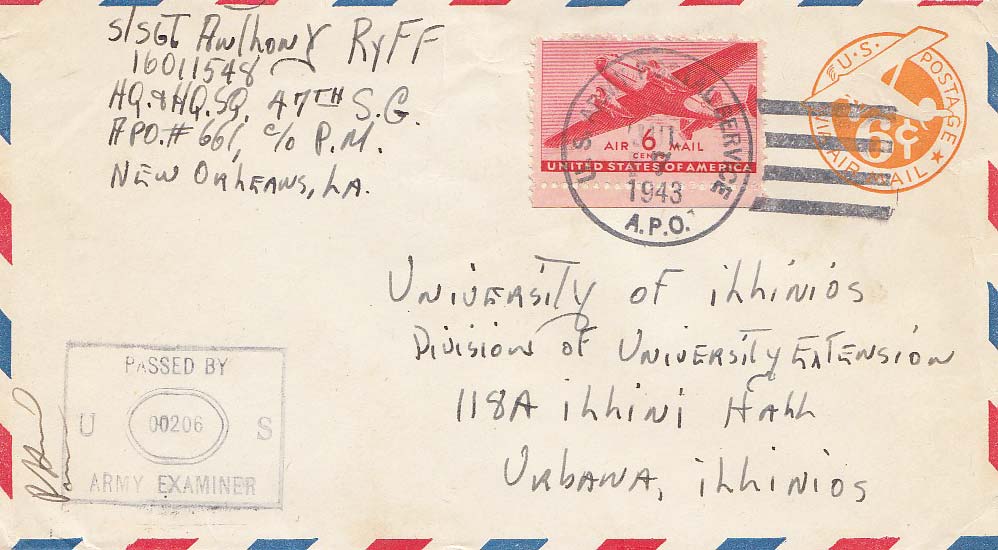 S/SGT ANTHONY RYFF
16011548
HQ. & HQ. SQ. 47TH S.G.
APO.# 661, C/O P.M.
NEW ORLEANS, LA.
AIR 6 MAIL
CENTS
UNITED STATES OF AMERICA
1943
A.P.O.
U.S. POSTAGE
6¢
VIA AIR MAIL
UNIVERSITY OF iLLINIOS
DIVISION OF UNIVERSITY EXTENSION
118A iLLINI HALL
URBANA, iLLINIOS
PASSED BY
U 00206 S
ARMY EXAMINER